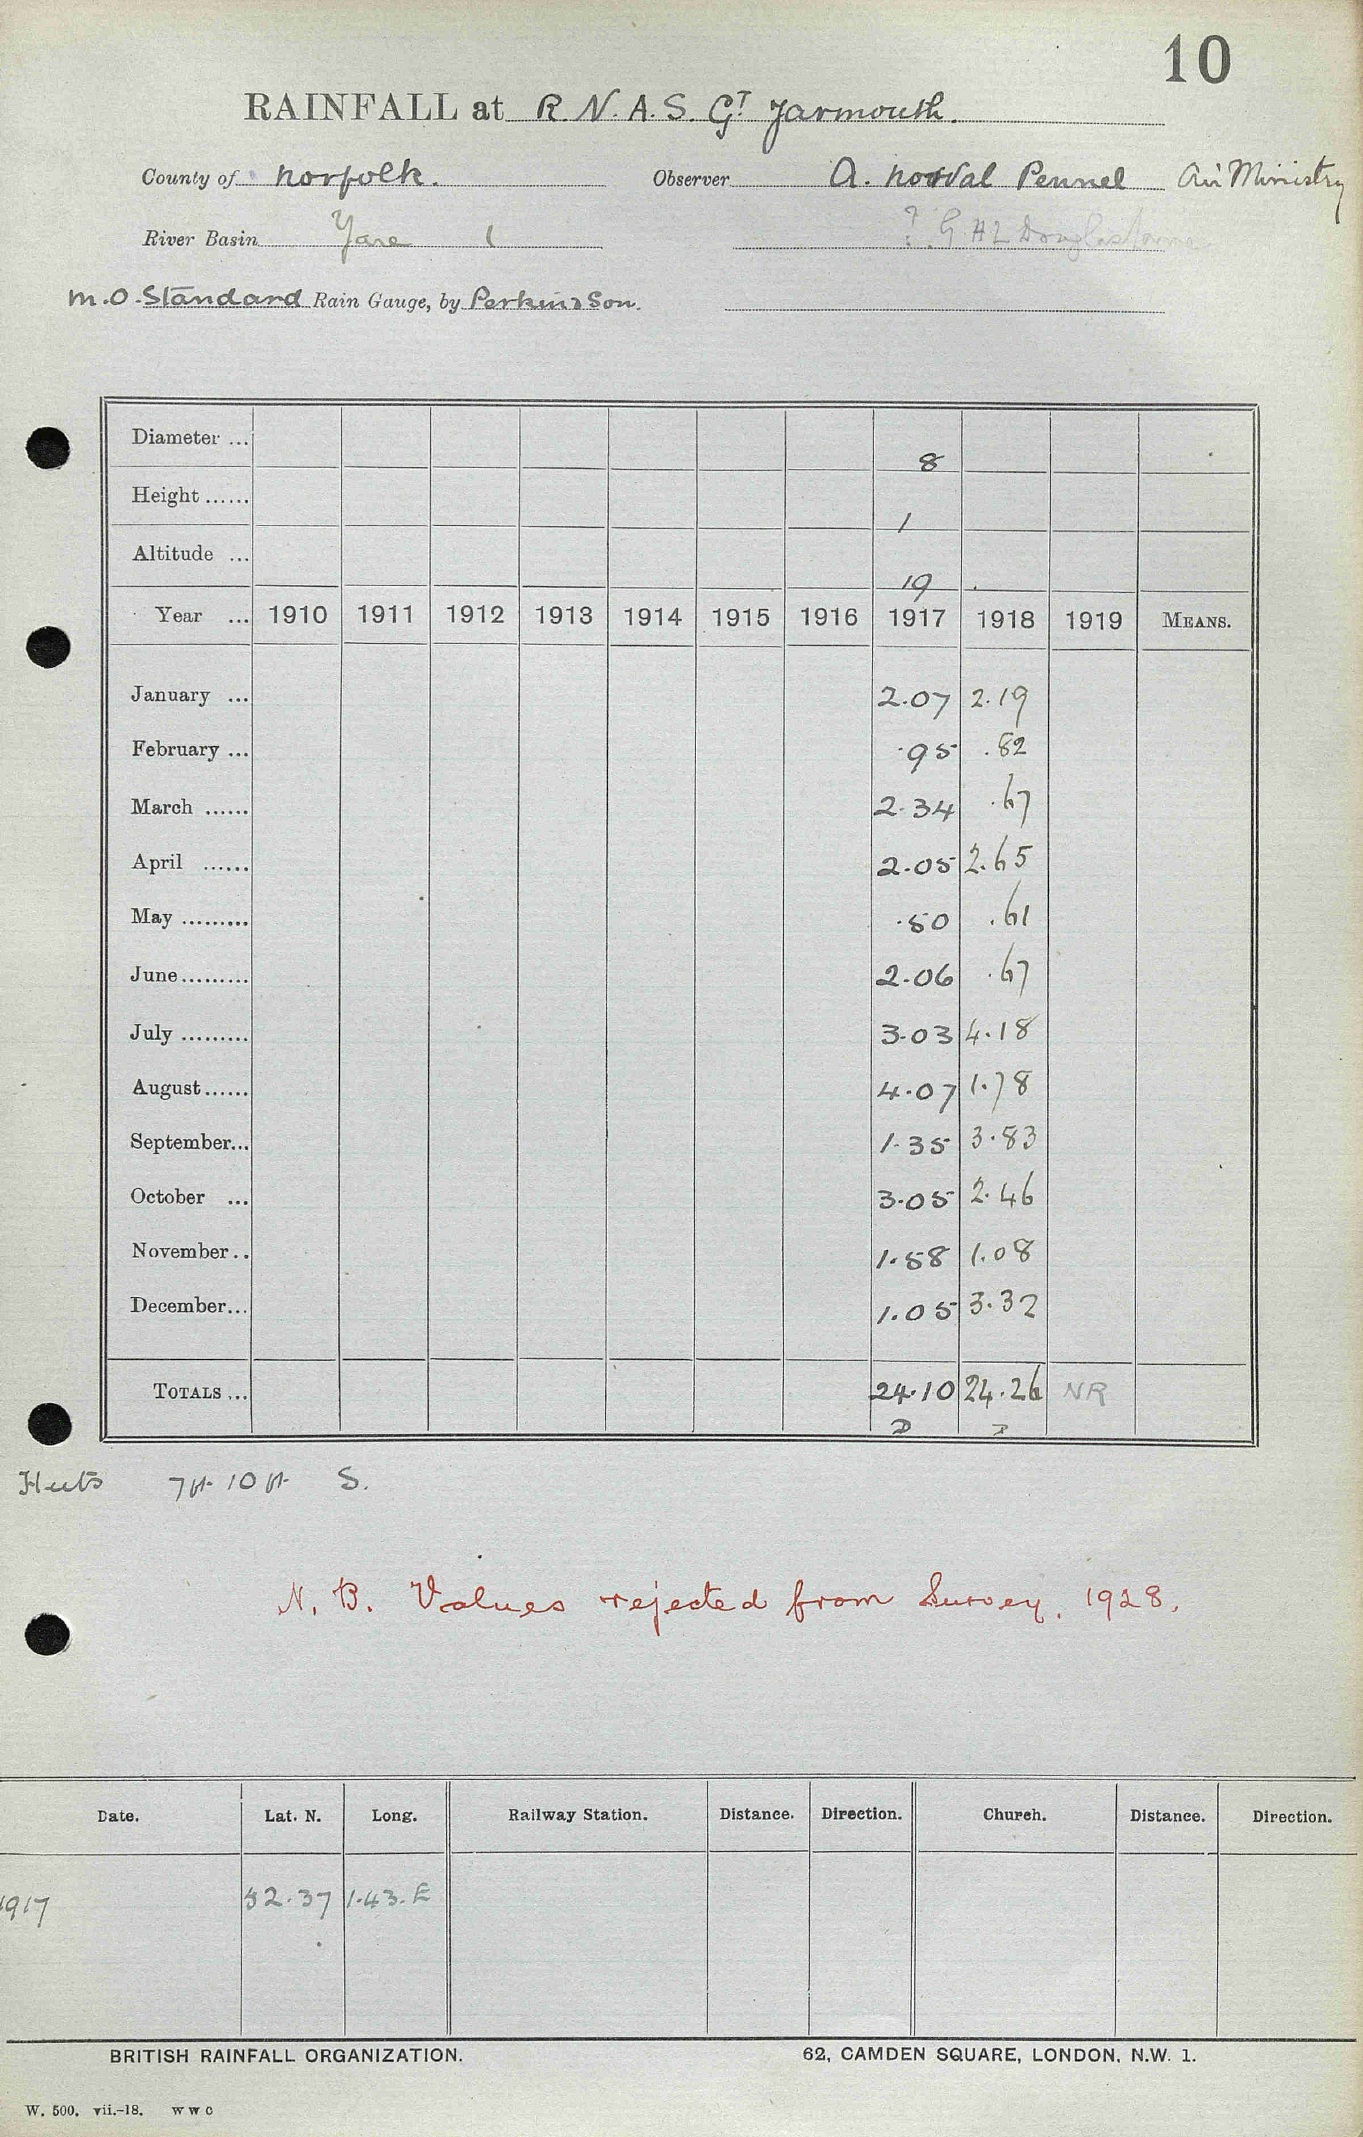 10
RAINFALL at R.N.A.S. Gt Yarmouth.
County of Norfolk. Observer A. Norval Pennel Air Ministry
River Basin Yare 1 ? G H L Douglas
M.O. Standard Rain Gauge, by Perkin & Son.
Diameter ... 8
Height ...... 1
Altitude ... 19
Year ... 1910 1911 1912 1913 1914 1915 1916 1917 1918 1919 MEANS.
January ... 2.07 2.19
February ... .95 .82
March ...... 2.34 .67
April ...... 2.05 2.65
May ......... .50 .61
June......... 2.06 .67
July ......... 3.03 4.18
August...... 4.07 1.78
September... 1.35 3.83
October ... 3.05 2.46
November.. 1.58 1.08
December... 1.05 3.32
TOTALS ... 24.10 24.26 NR
D D
Huts 7ft 10ft S.
N.B. Values rejected from Survey. 1928.
Date. Lat. N. Long. Railway Station. Distance. Direction. Church. Distance. Direction.
1917 52.37 1.43.E
BRITISH RAINFALL ORGANIZATION. 62, CAMDEN SQUARE, LONDON, N.W. 1.
W. 500. vii.-18. W W C